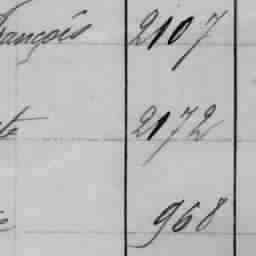 François 2107
2172
968